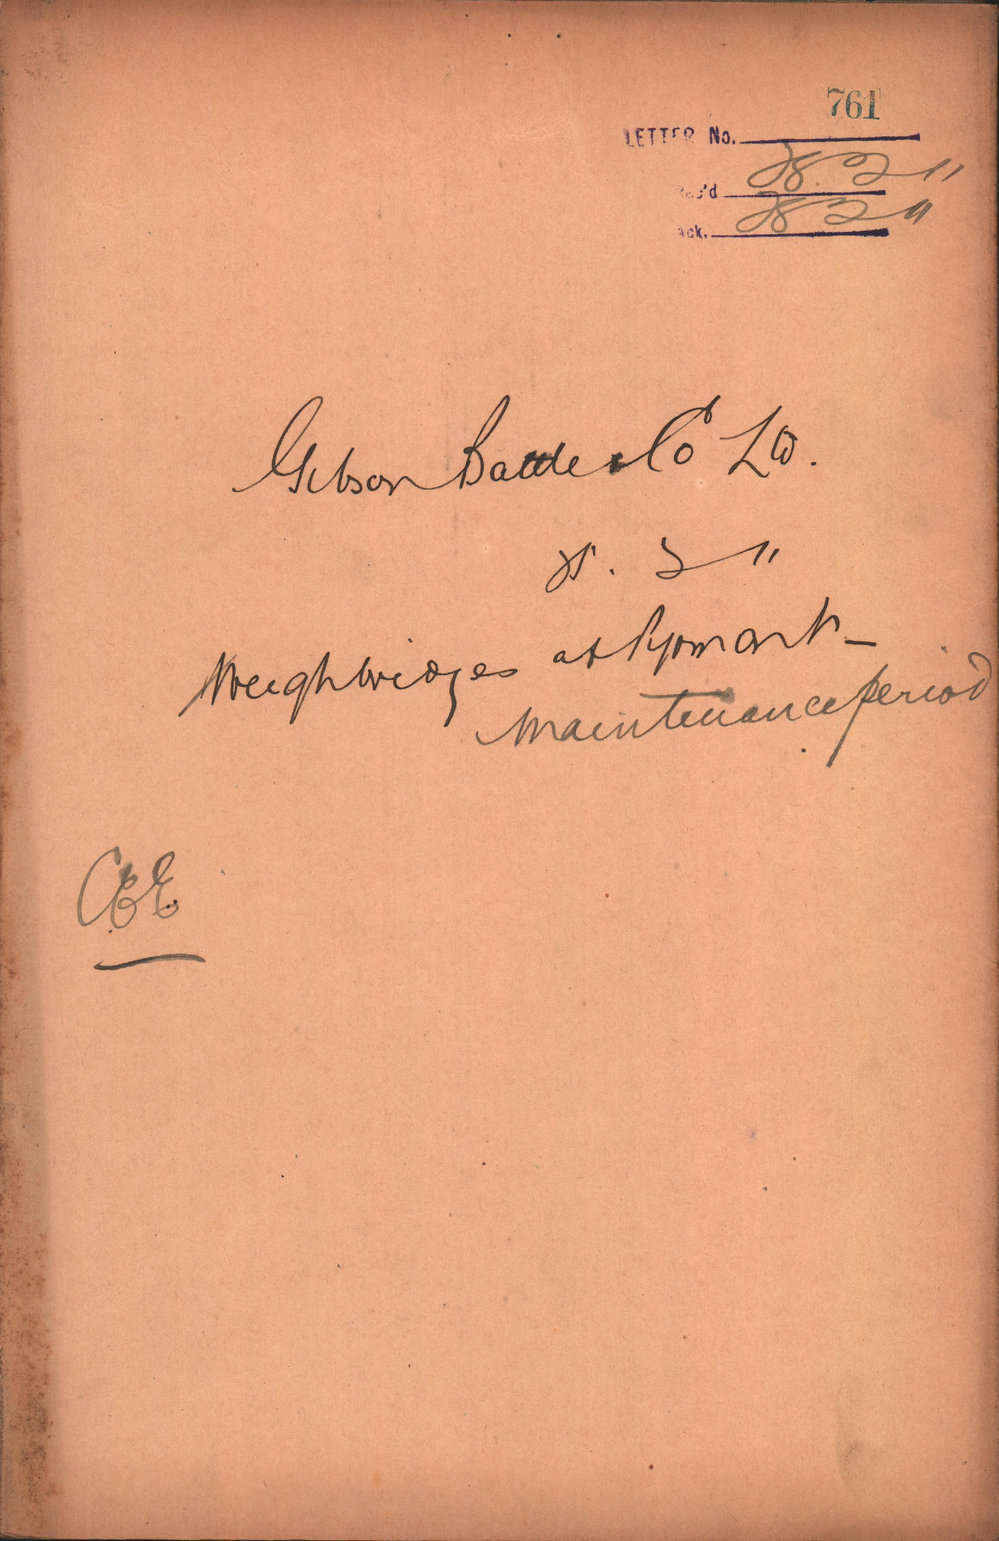 761
LETTER No.
Rec'd 28.2.11
Ack. 28.2.11
Gibson Battle & Co Ltd.
2.11
Weighbridges at Pyrmont -
maintenance period